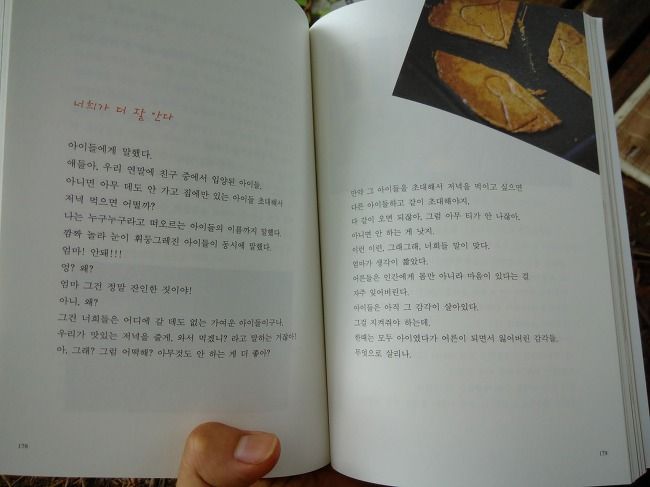 너희가 더 잘 안다
아이들에게 말했다.
얘들아, 우리 연말에 친구 중에서 입양된 아이들,
아니면 아무 데도 안 가고 집에만 있는 아이들 초대해서
저녁 먹으면 어떨까?
나는 누구누구라고 떠오르는 아이들의 이름까지 말했다.
깜짝 놀라 눈이 휘둥그레진 아이들이 동시에 말했다.
엄마! 안돼!!!
엉? 왜?
엄마 그건 정말 잔인한 짓이야!
아니, 왜?
그건 너희들은 어디에 갈 데도 없는 가여운 아이들이구나.
우리가 맛있는 저녁을 줄게, 와서 먹겠니? 라고 말하는 거잖아!
아, 그래? 그럼 어떡해? 아무것도 안 하는 게 더 좋아?
178
만약 그 아이들을 초대해서 저녁을 먹이고 싶으면
다른 아이들하고 같이 초대해야지.
다 같이 오면 되잖아. 그럼 아무 티가 안 나잖아.
아니면 안 하는 게 낫지.
이런 이런, 그래그래, 너희들 말이 맞다.
엄마가 생각이 짧았다.
어른들은 인간에게 몸만 아니라 마음이 있다는 걸
자주 잊어버린다.
아이들은 아직 그 감각이 살아있다.
그걸 지켜줘야 하는데,
한때는 모두 아이였다가 어른이 되면서 잃어버린 감각들,
무엇으로 살리나.
179